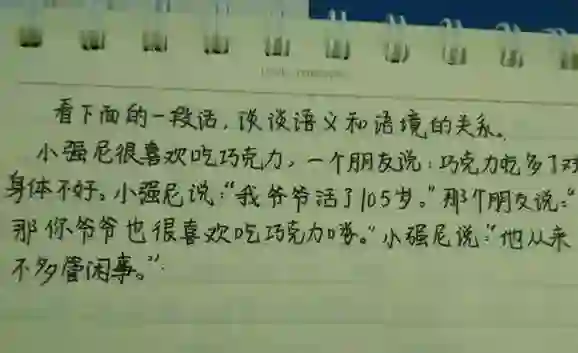 看下面的一段话，谈谈语义和语境的关系。
小强尼很喜欢吃巧克力，一个朋友说：巧克力吃多了对
身体不好。小强尼说：“我爷爷活了105岁。”那个朋友说：“
那你爷爷也很喜欢吃巧克力啰。”小强尼说：“他从来
不多管闲事。”